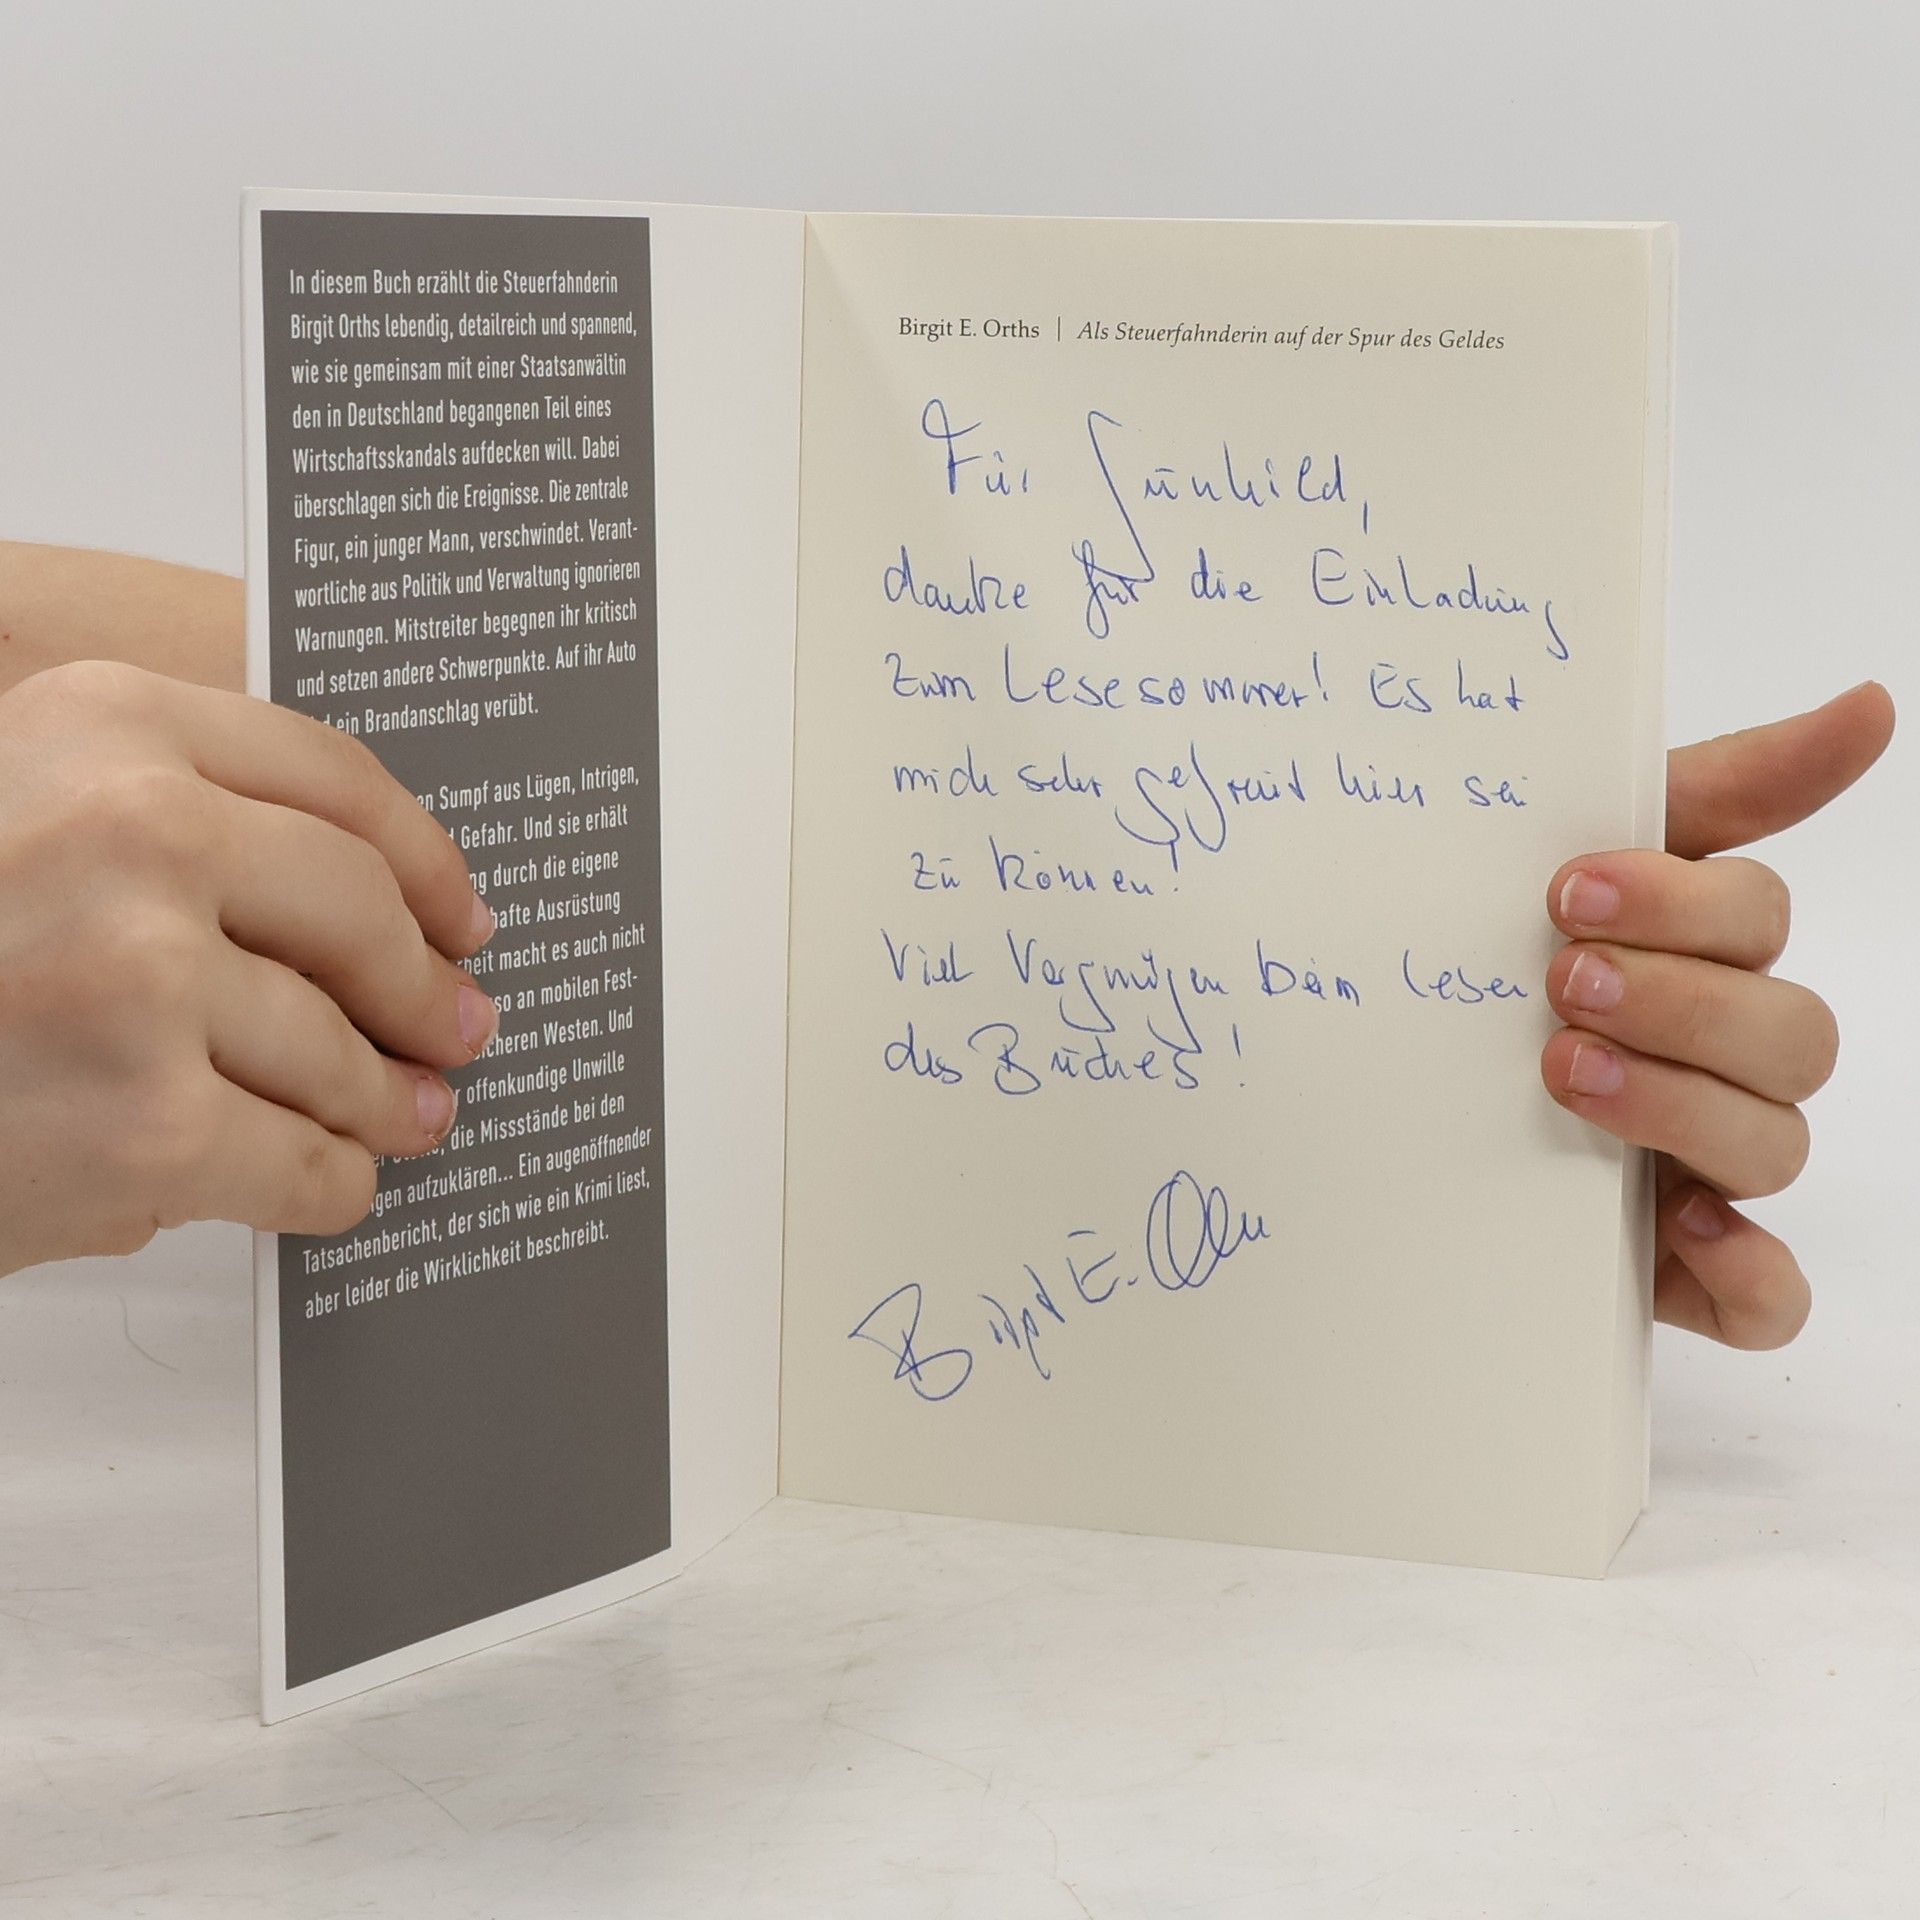 In diesem Buch erzählt die Steuerfahnderin
Birgit Orths lebendig, detailreich und spannend,
wie sie gemeinsam mit einer Staatsanwältin
den in Deutschland begangenen Teil eines
Wirtschaftsskandals aufdecken will. Dabei
überschlagen sich die Ereignisse. Die zentrale
Figur, ein junger Mann, verschwindet. Verant-
wortliche aus Politik und Verwaltung ignorieren
Warnungen. Mitstreiter begegnen ihr kritisch
und setzen andere Schwerpunkte. Auf ihr Auto
ein Brandanschlag verübt.
Sumpf aus Lügen, Intrigen,
Gefahr. Und sie erhält
durch die eigene
hafte Ausrüstung
macht es auch nicht
so an mobilen Fest-
Westen. Und
offenkundige Unwille
die Missstände bei den
aufzuklären... Ein augenöffnender
Tatsachenbericht, der sich wie ein Krimi liest,
aber leider die Wirklichkeit beschreibt.
Birgit E. Orths | Als Steuerfahnderin auf der Spur des Geldes
Für Gunhild,
danke für die Einladung
zum Lesesommer! Es hat
mich sehr gefreut hier sein
zu können!
Viel Vergnügen beim Lesen
des Buches!
Birgit E. Orths